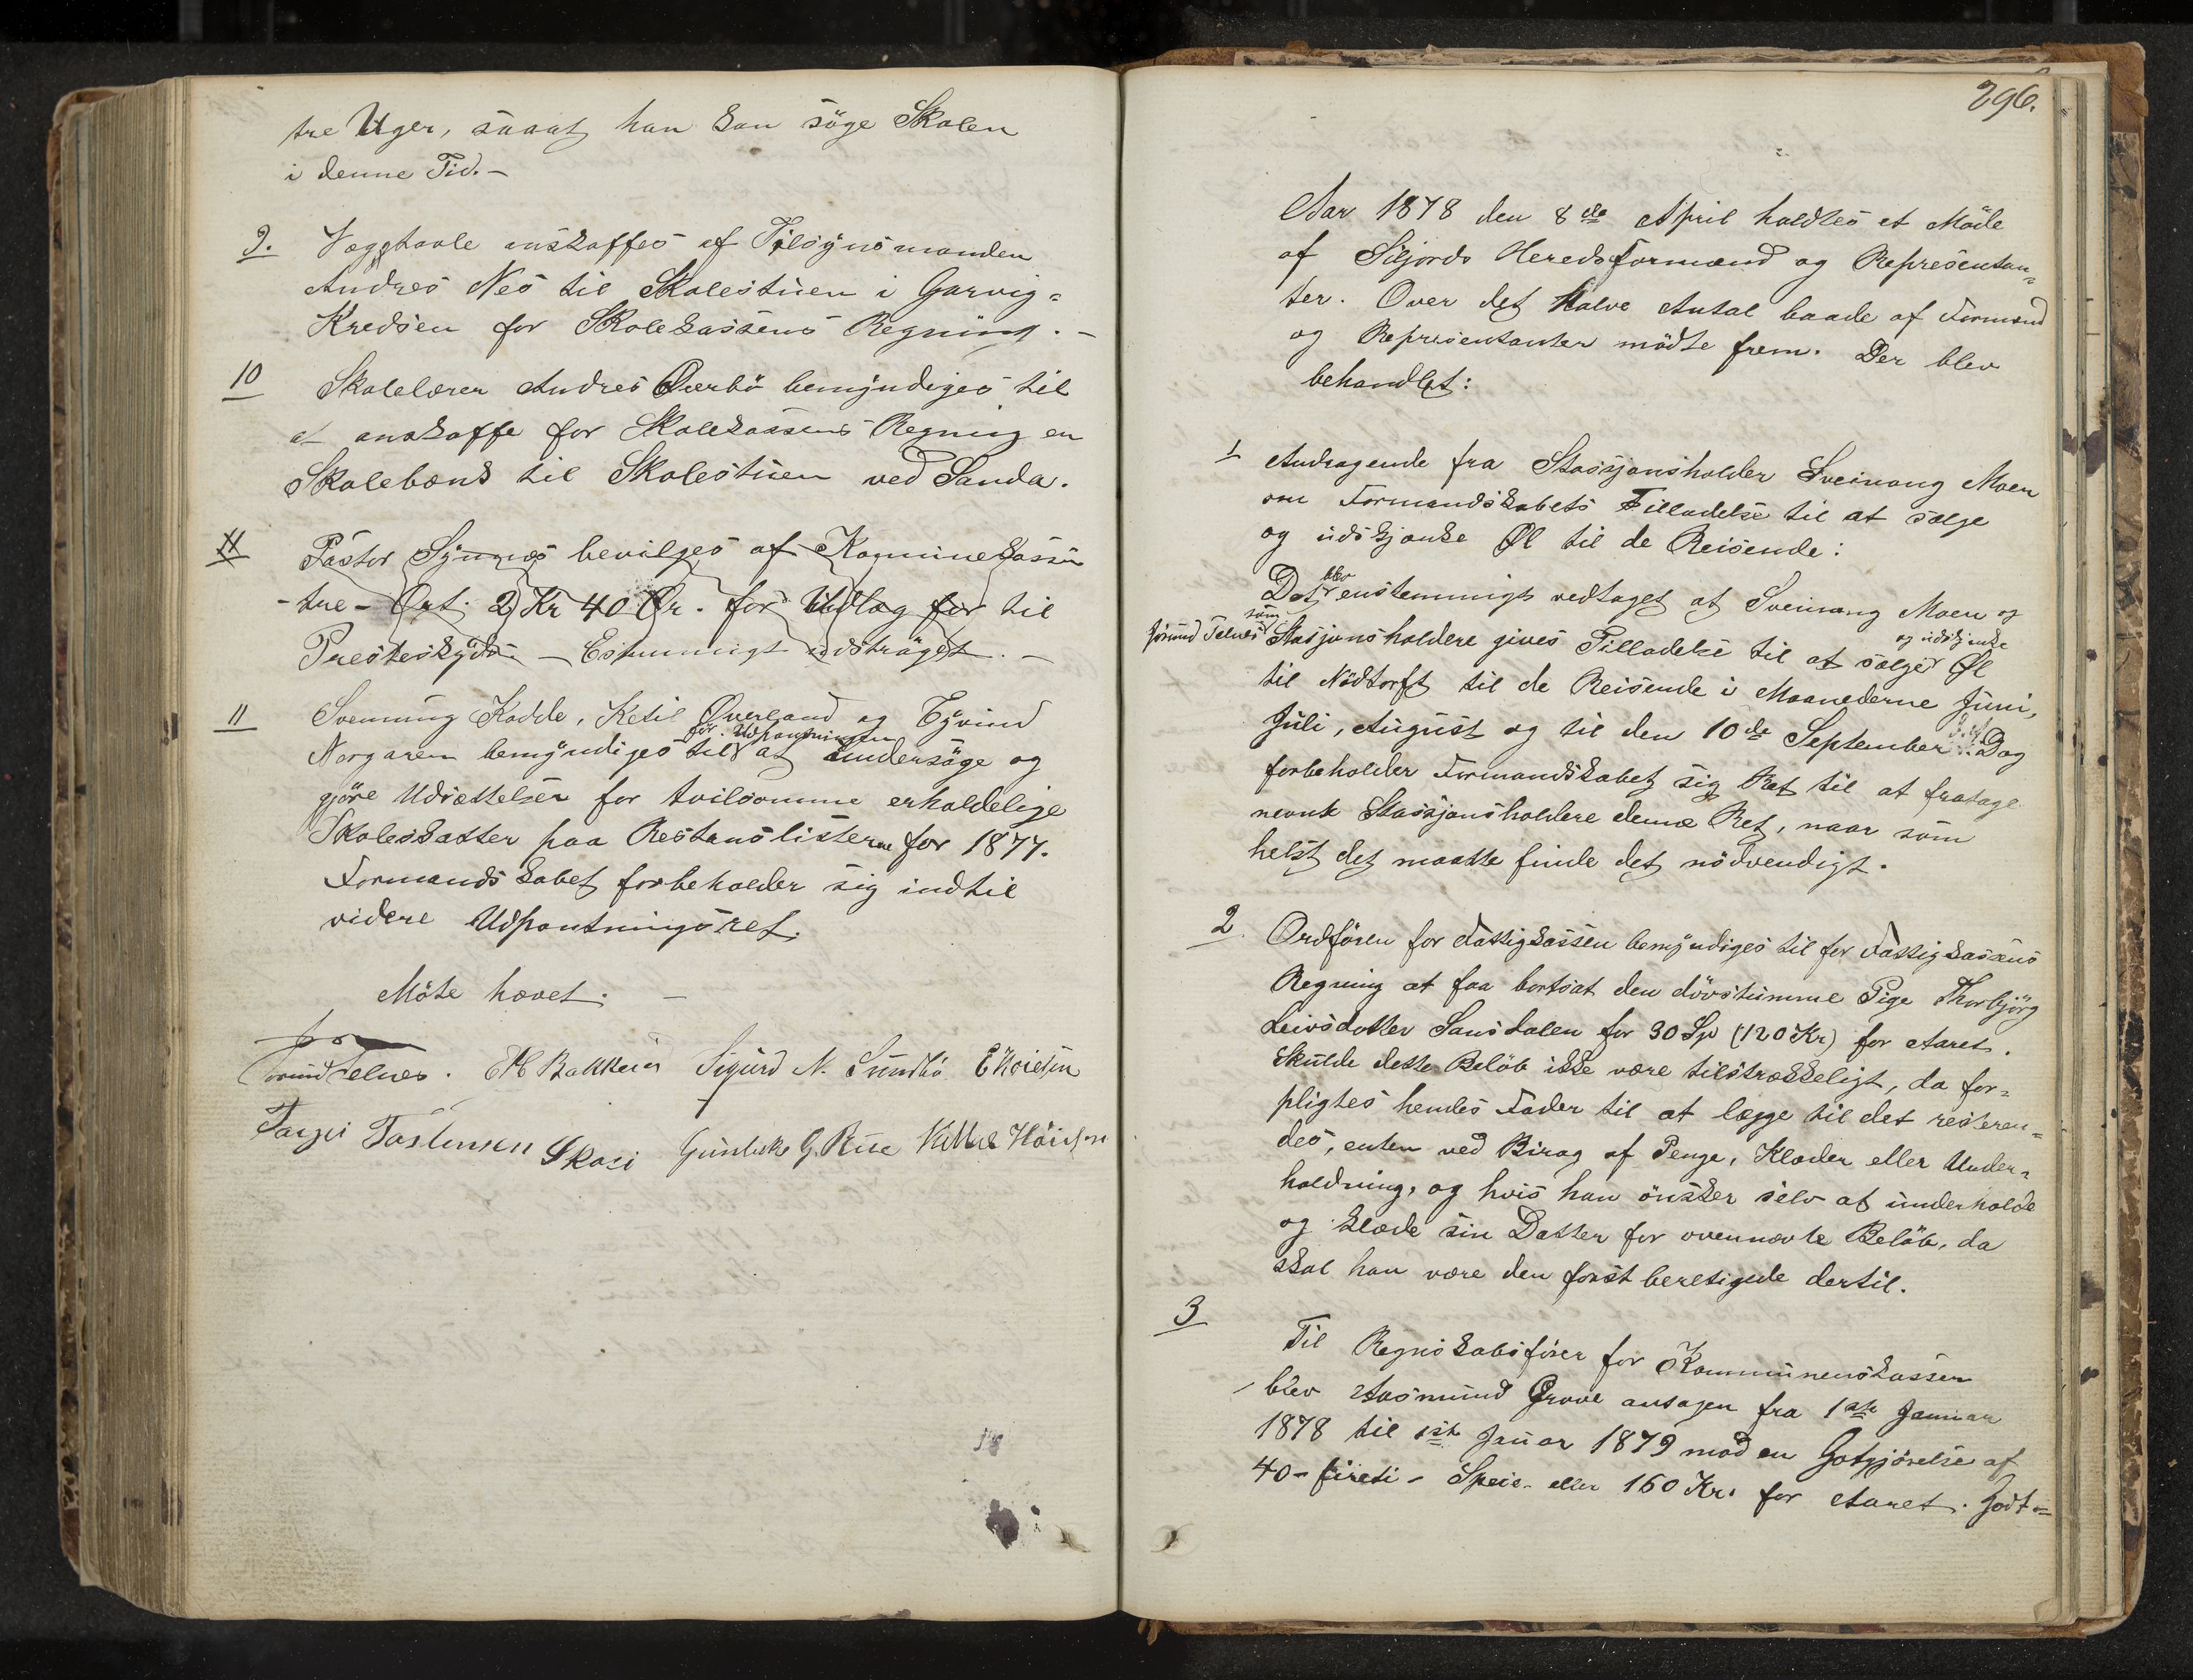 tre Uger, saaat han kan söge Skolen
i denne Tid. –
9. Vægghavle anskaffes af Tilsynsmanden
Andres Nes til Skolestuen i Garvig=
Kredsen for Skolekassens Regning. –
10 Skolelærer Andres Øverbö bemyndiges til
at anskaffe for Skolekassens Regning en
Skolebænk til Skolestuen ved Sanda.
11 Pastor Synnes bevilges af Kommunekassen
- tre - Ort. 2 Kr 40 Ør. for Udlæg for til
Presteskyds. – Estemmigt udströget. –
11 Svenning Kodde, Ketil Øverland og Eyvind
för Udpantningen
Norgaren bemyndiges til at undersöge og
gjöre Udsættelser for tvilsomme erholdelige
Skoleskatter paa Restanslisterne for 1877.
Formandskabet forbeholder sig indtil
videre Udpantningsret.
Möte hævet. –
Jorund Telnes. EH Bakken Sigurd N. Sundbö
Targei Taslensen Skasi Gunleik G. Rue
296.
Aar 1878 den 8de April holdtes et Möde
af Siljords Heredsformænd og Representan=
ter. Over det halve Antal baade af Formænd
og Representanter mödte frem. Der blev
behandlet:
1 Andragende fra Stassjonsholder Sveinang Moen
om Formandskabets Tilladelse til at sælge
og udskjænke Øl til de Reisende:
blev
Det enstemmigt vedtaget at Sveinang Moen og
som og udskjenke
Jörund Telnes Stasjonsholdere gives Tilladelse til at sælge Øl
til Nödtorft til de Reisende i Maanederne Juni,
Juli, August og til den 10de September d. A. Dog
forbeholder Formandskabet sig Ret til at fratage
nevnte Stassjonsholdere denne Ret, naar som
helst det maatte finde det nödvendigt.
2. Ordfören for Fattigkassen bemyndiges til for Fattigkassens
Regning at faa bortsat den dövstumme Pige Thorbjörg
Leivsdatter Sansdalen for 30 Sp (120 Kr) for Aaret.
Skulde dette Belöb ikke være tilstrækkeligt, da for=
pligtes hendes Fader til at lægge til det resteren=
des, enten ved Birag af Penge, Klæder eller Under=
holdning, og hvis han önsker selv at underholde
og klæde sin Datter for ovennævte Belöb, da
skal han være den först beretigede dertil.
3
Til Regnskabsförer for Kommunenskassen
blev Aasmund Grave antagen fra 1ste Januar
1878 til 1ste Januar 1879 mod en Gotgjörelse af
40 - fireti - Specie- eller 160 Kr. for Aaret. Godt=